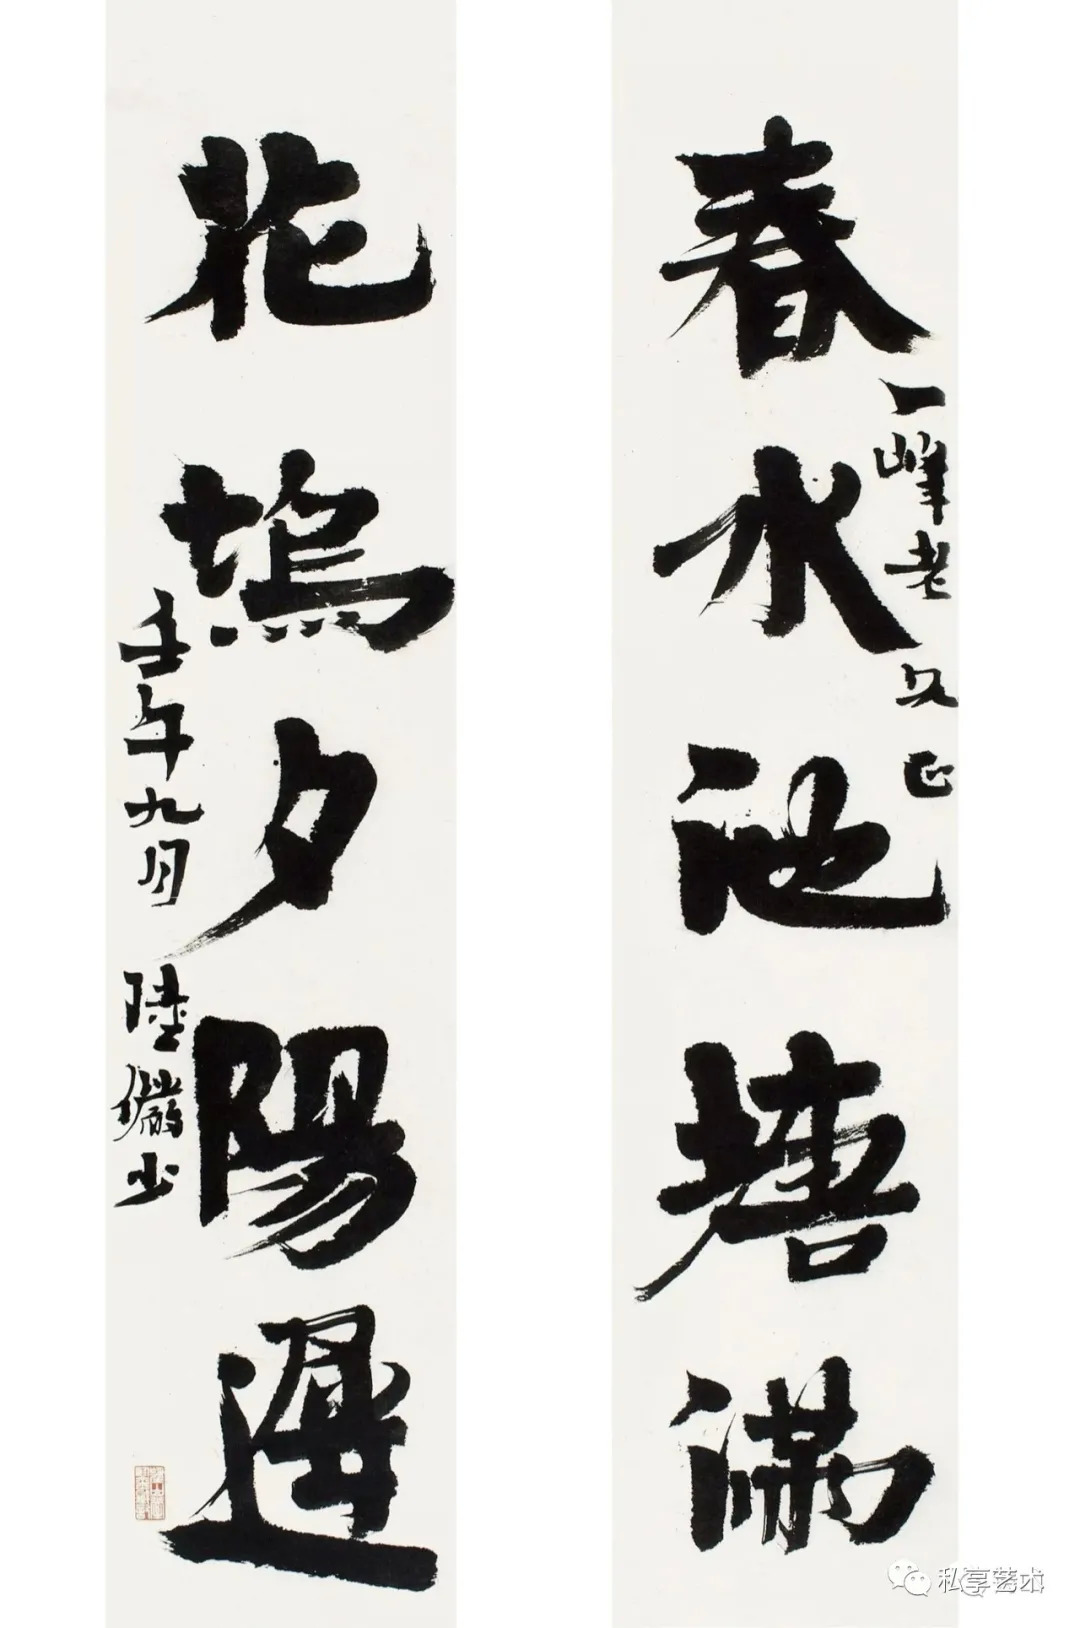 春水池塘满
一峰老久正
花塢夕陽遲
壬午九月
陸儼少
私享艺术